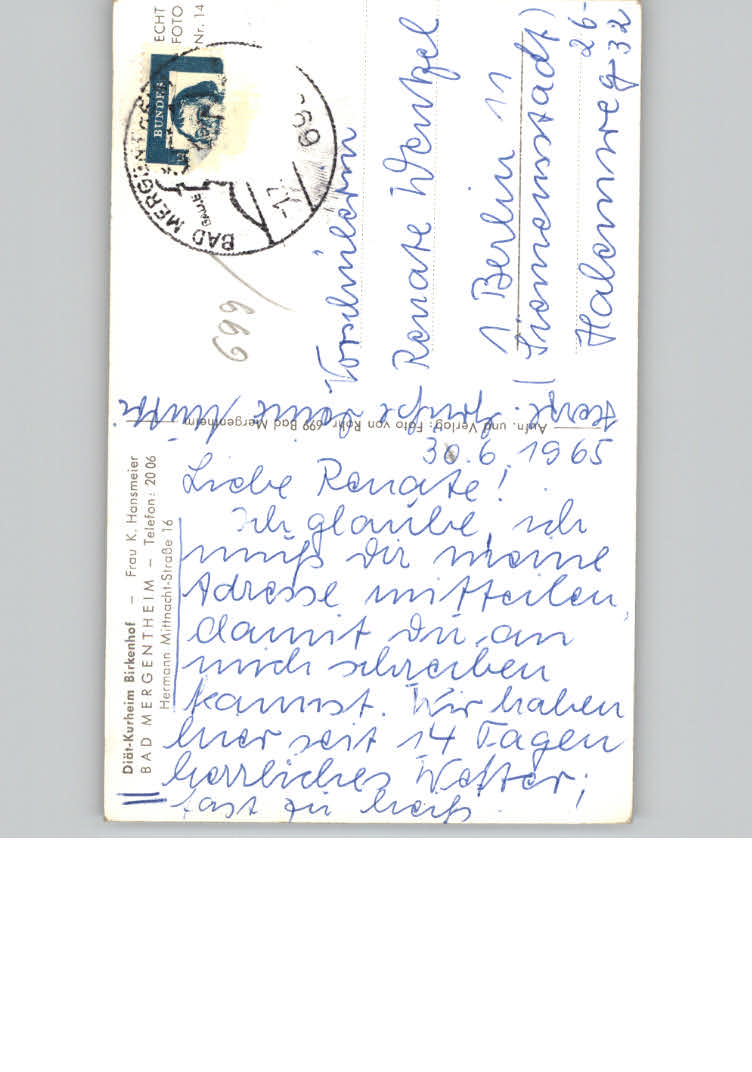 Diät-Kurheim Birkenhof – Frau K. Hansmeier
BAD MERGENTHEIM – Telefon: 20 06
Hermann Mittnacht-Straße 16
30.6.1965
Liebe Renate!
Ich glaube, ich
muß Dir meine
Adresse mitteilen,
damit Du an
mich schreiben
kannst. Wir haben
hier seit 14 Tagen
herrliches Wetter;
fast zu heiß.
Herzl. Grüße Deine Mutti
Aufn. und Verlag: Foto von Rohr, 699 Bad Mergentheim
ECHT
FOTO
Nr. 14
BUNDES
BAD MERGENTHEIM
699
Vorschülerin
Renate Wentzel
1 Berlin 11
(Siemensstadt)
Halemweg 26-
32